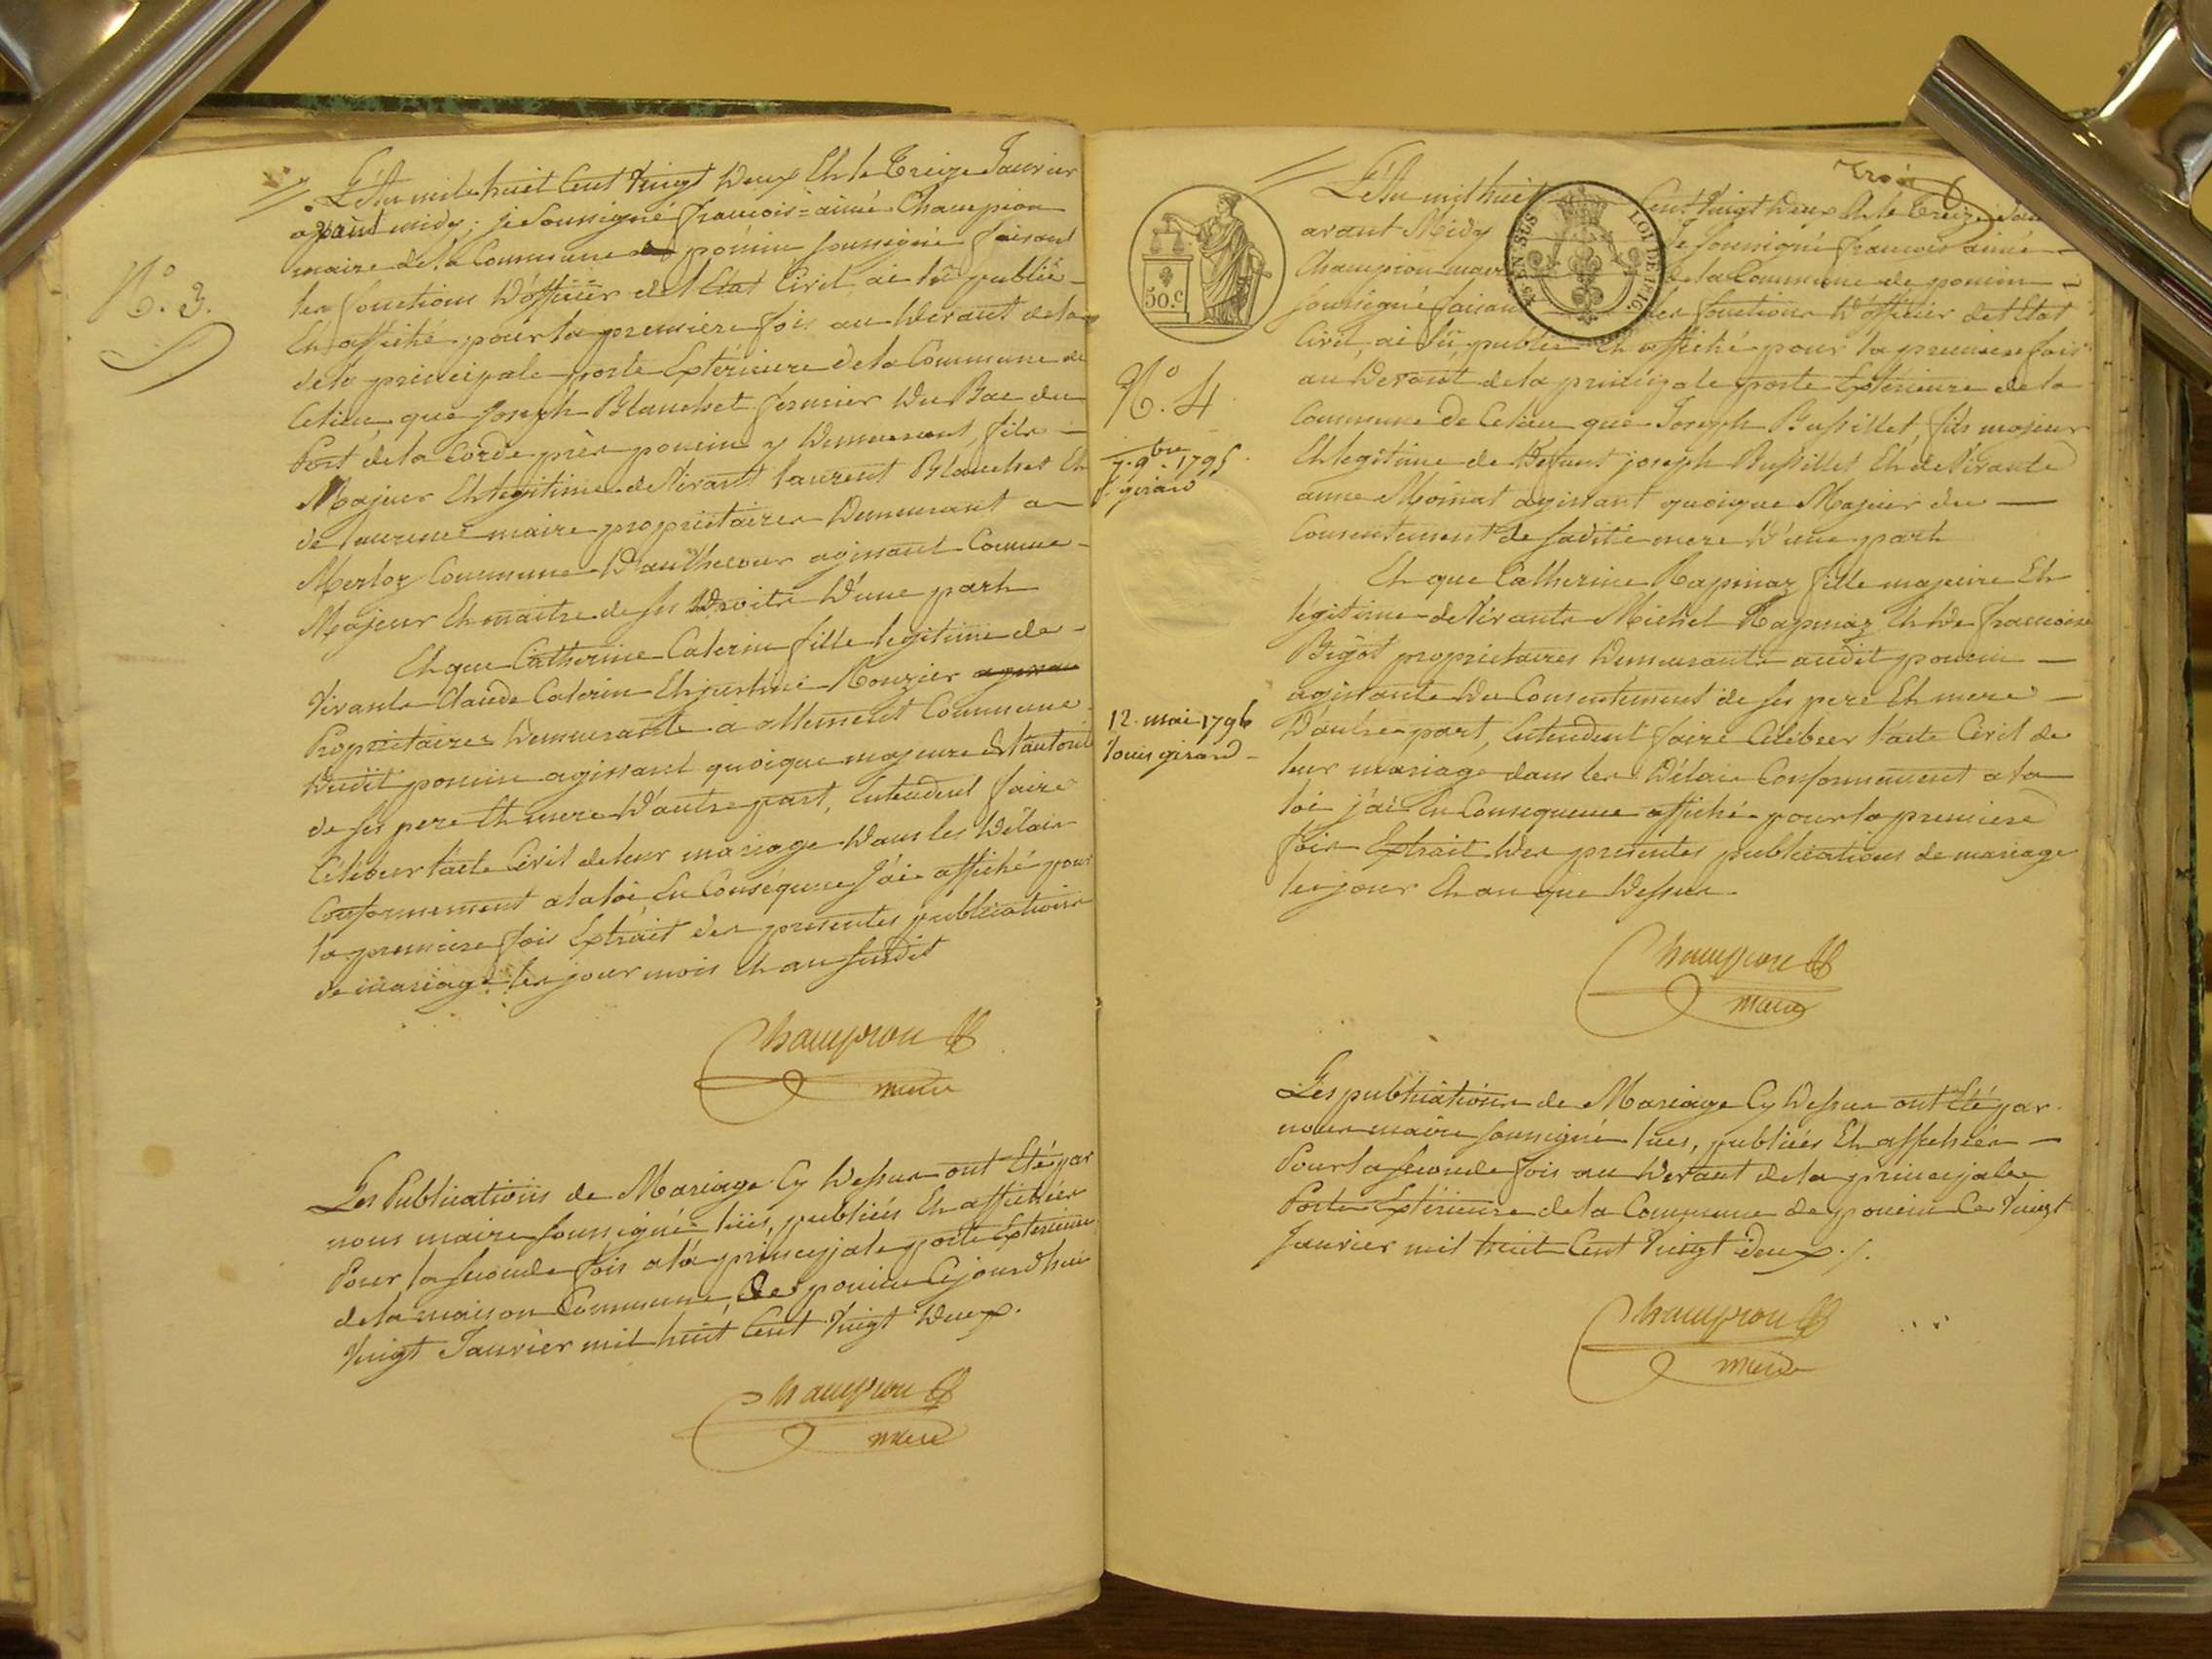 N.° 3.
L'An mil huit Cent Vingt Deux Et le Treize Janvier
avant midy, je Soussigné françois=aimé Champion
maire de la Commune de poncin soussigné faisant
les fonctions D'officier de l'Etat Civil, ai lu publié
Et affiché pour la premiere fois au Devant de la
de la principale porte Extérieure de la Commune de
Celieu, que Joseph Blanchet fermier Du Bac du
Port de la Corde près poncin y Demeurant, fils
Majeur Et legitime de Vivant laurent Blanchet Et
de laurence maire propriétaires Demeurant a
Merloz Commune D'authecour agissant Comme
Majeur Et maitre de ses Droits D'une part
Et que Catherine Caterin fille legitime de
Vivants Claude Caterin Et justine Rouzier
Propriétaires Demeurants à allement Commune
Dudit poncin agissant quoique majeure de l'autorité
de ses pere Et mere D'autre part, Entendent faire
Celebrer l'acte Civil de leur mariage Dans les Délais
Conformement a la loi, En Conséquence J'ai affiché pour
la premiere fois Extrait des presentes publications
de mariage les jour mois Et an susdit
Champion
maire
Les Publications de Mariage Cy Dessus ont Eté par
nous maire soussigné lües, publiées Et affichées
Pour la seconde fois a la principale porte Exterieure
de la maison Commune De poncin Cejourd'hui
Vingt Janvier mil huit Cent Vingt Deux.
Champion
maire
Trois
50.c
25 EN SUS
LOI DE 1816
N.° 4
7. 9bre 1795
f. girard
12. mai 1796
louis girard
L'An mil huit Cent Vingt Deux Et le Treize Janv
avant Midy Je Soussigné francois aimé
Champion maire de la Commune de poncin
soussigné faisant les fonctions D'officier de l'Etat
Civil, ai lû, publié Et affiché pour la premiere fois
au Devant de la principale porte Extérieure de la
Commune de Celieu que Joseph Bussillet, fils majeur
Et legitime de Defunt joseph Bussillet Et de Vivante
anne Mornat agissant quoique Majeur du
Consentement de sadite mere D'une part
Et que Catherine Rapinaz fille majeure Et
légitime de Vivants Michel Rapinaz Et De francoise
Bigot propriétaires Demeurants audit poncin
agissante Du Consentement de ses pere Et mere
D'autre part, Entendent faire Celebrer l'acte Civil de
leur mariage dans les Délais Conformement a la
loi j'ai En Consequence affiché pour la premiere
fois Extrait Des presentes publications de mariage
les jour Et an que Dessus
Champion
maire
Les publications de Mariage Cy Dessus ont Eté par
nous maire soussigné lues, publiées Et affichées
Pour la seconde fois au Devant de la principale
Porte Extérieure de la Commune de poncin Ce Vingt
Janvier mil huit Cent Vingt Deux./.
Champion
maire